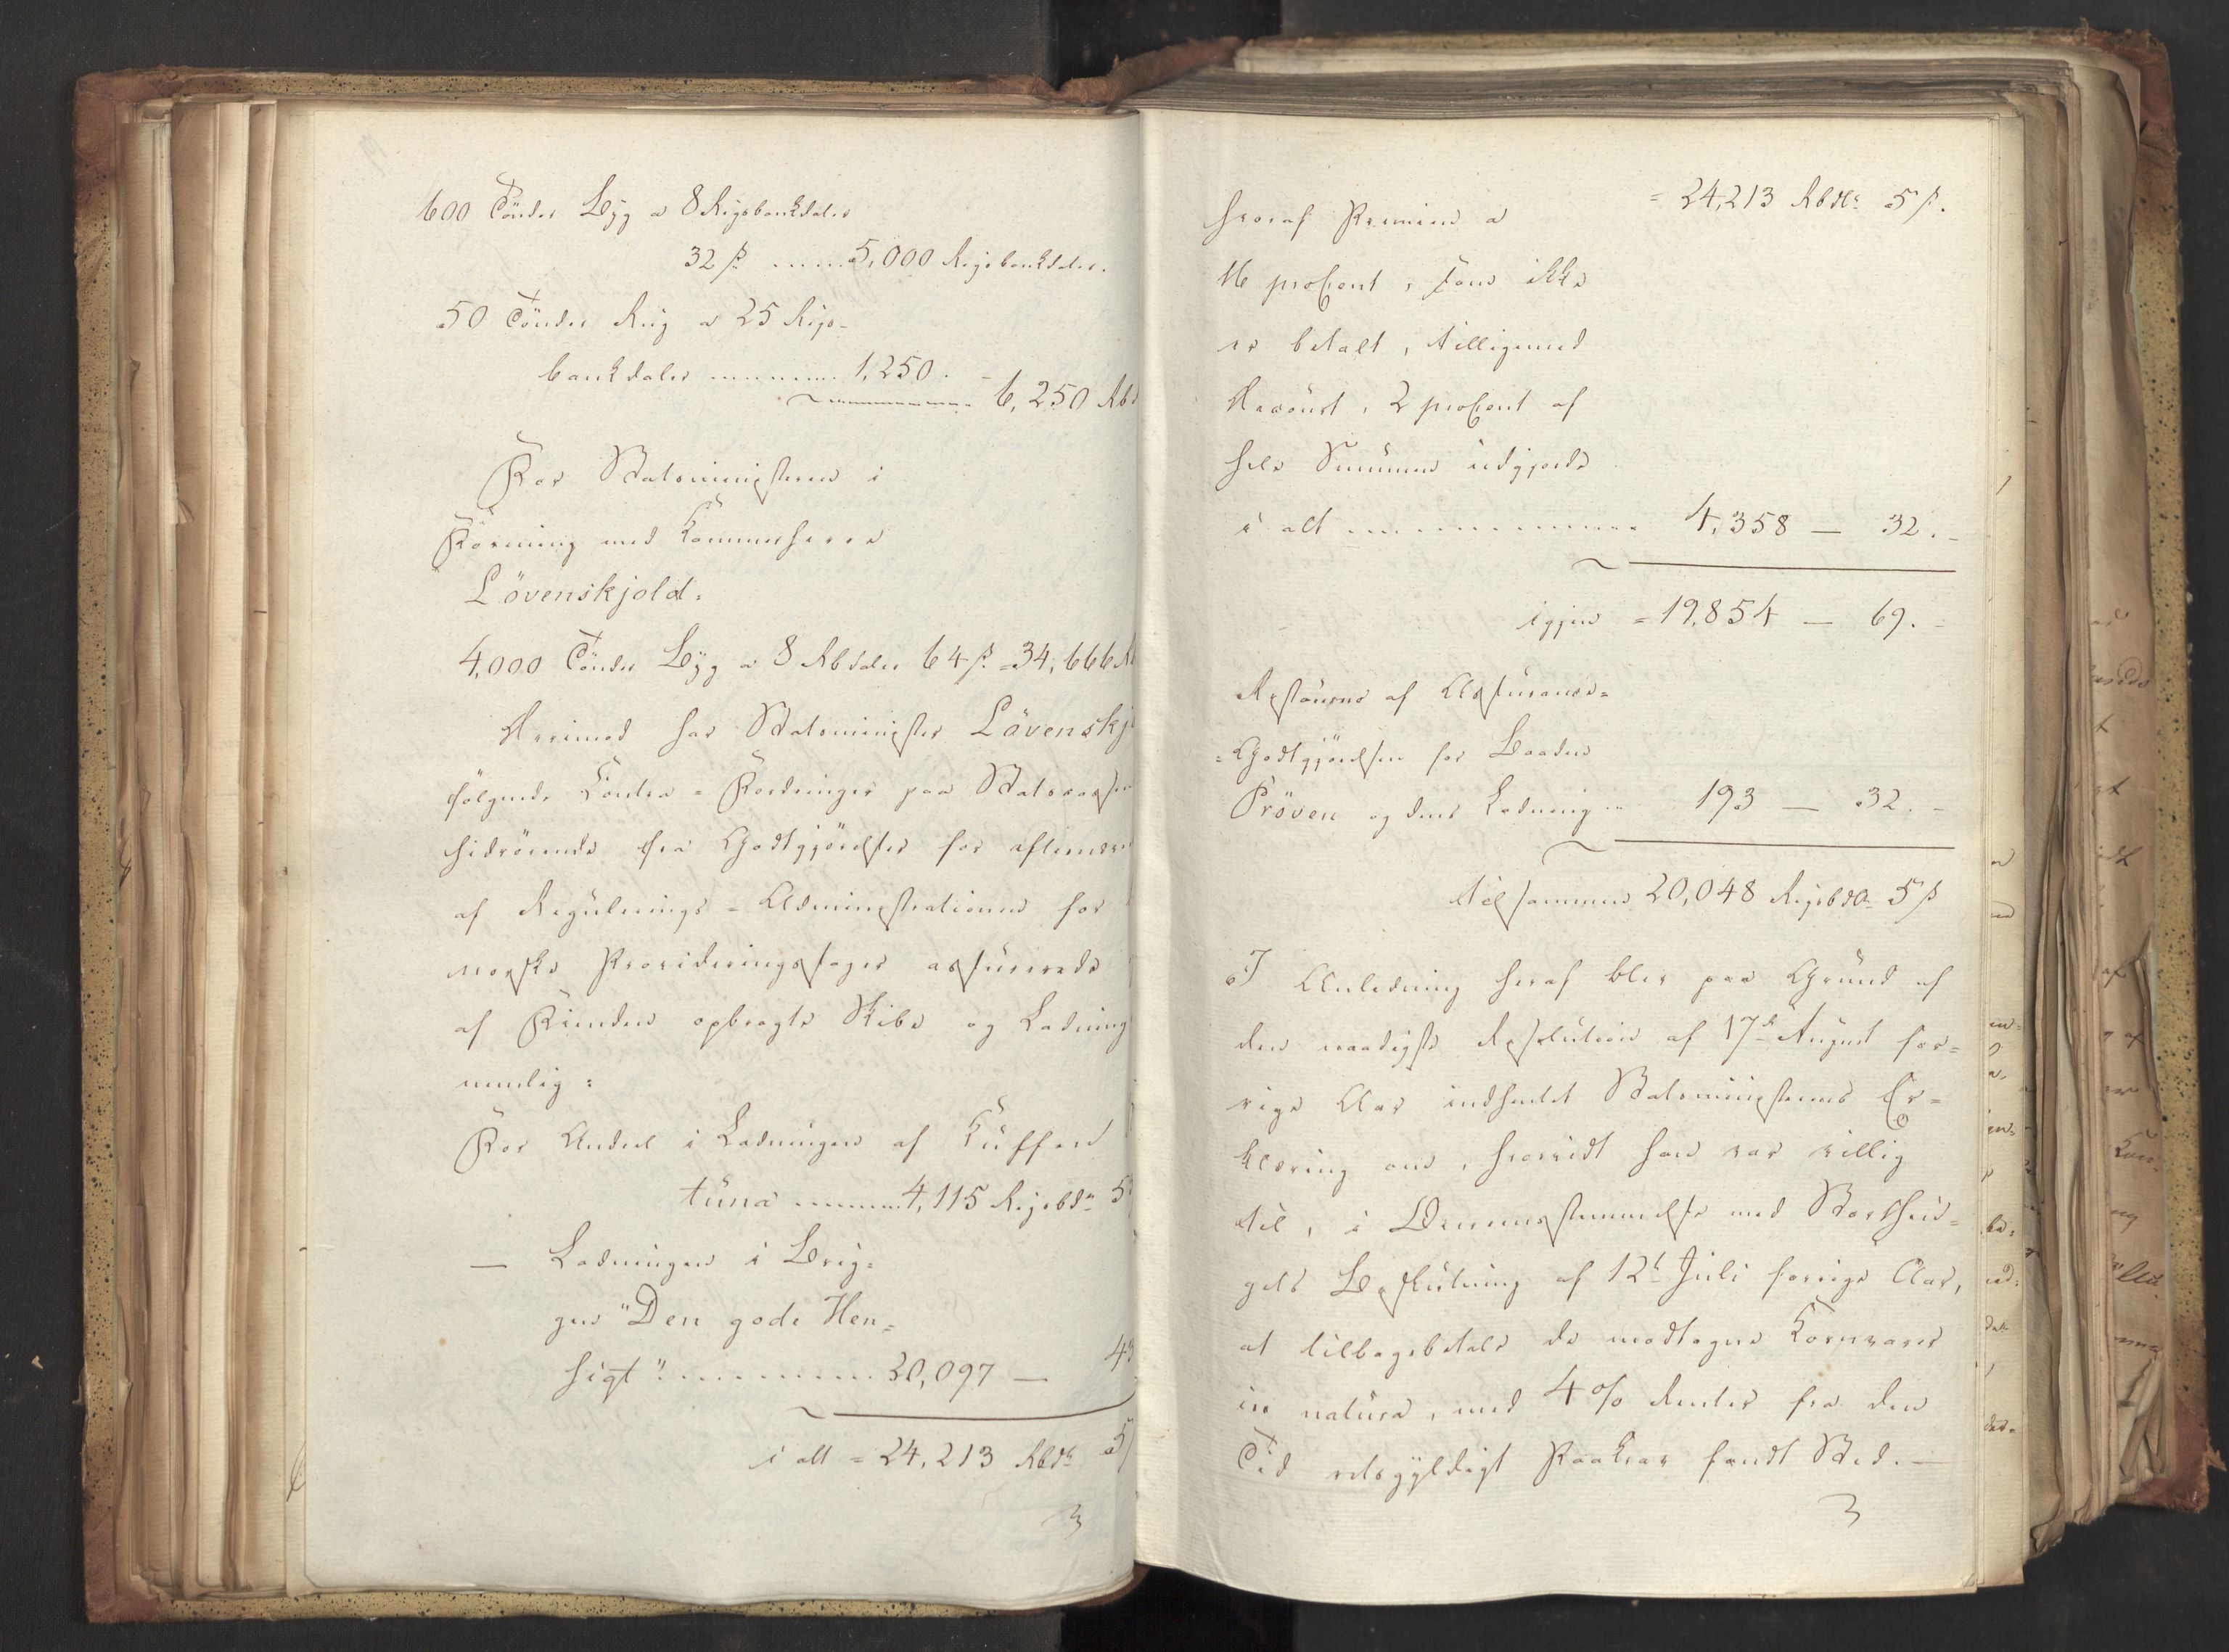 600 Tönder Byg a 8 Rigsbankdaler
32 ß ..... 5,000 Rigsbankdaler.
50 Tönder Rug a 25 Rigs=
bankdaler ......... 1,250. -
............ 6,250 Rbd
For Statsministeren i
Forening med Kammerherre
Lövenskjold:
4,000 Tönder Byg a 8 Rbdaler 64 ß. = 34,666 R
Herimod har Statsminister Lövenskj
følgende Contra = Fordringer paa Statscassen
hidrörende fra Godtgjörelser for
af Regulerings = Administrationen for
norske Provideringssager assurerede
af Fienden opbragte Skibe og Ladning
nemlig:
For Andeel i Ladningen af Kuffen
tuna ....... 4,115 Rigsbd 5
— Ladningen i Brig=
gen "Den gode Hen=
sigt" ........... 20,097 — 43
i alt = 24,213 Rbdr 5
3
= 24,213 Rbdlr 5 ß.
hvoraf Præmien a
16 proCent, som ikke
er betalt, tilligemed
2 proCent af
hele Summen udgjorde
i alt ............ 4,358 — 32. -
igjen = 19,854 — 69. -
Restancer af Assurance=
=Godtgjörelsen for Baaden
Pröven og dens Ladning ... 193 — 32. -
tilsammen 20,048 Rigsbdlr 5 ß
I Anledning heraf blev paa Grund af
den naadigste Resolution af 17de August for=
rige Aar indhentet Statsministerens Er=
klæring om, hvorvidt han var villig
til, i Overensstemmelse med Storthin=
gets Beslutning af 12te Juli forrige Aar,
at tilbagebetale de modtagne Kornvarer
in natura, med 4 % Renter fra den
Tid retsgyldigt Paakrav fandt Sted. —
3